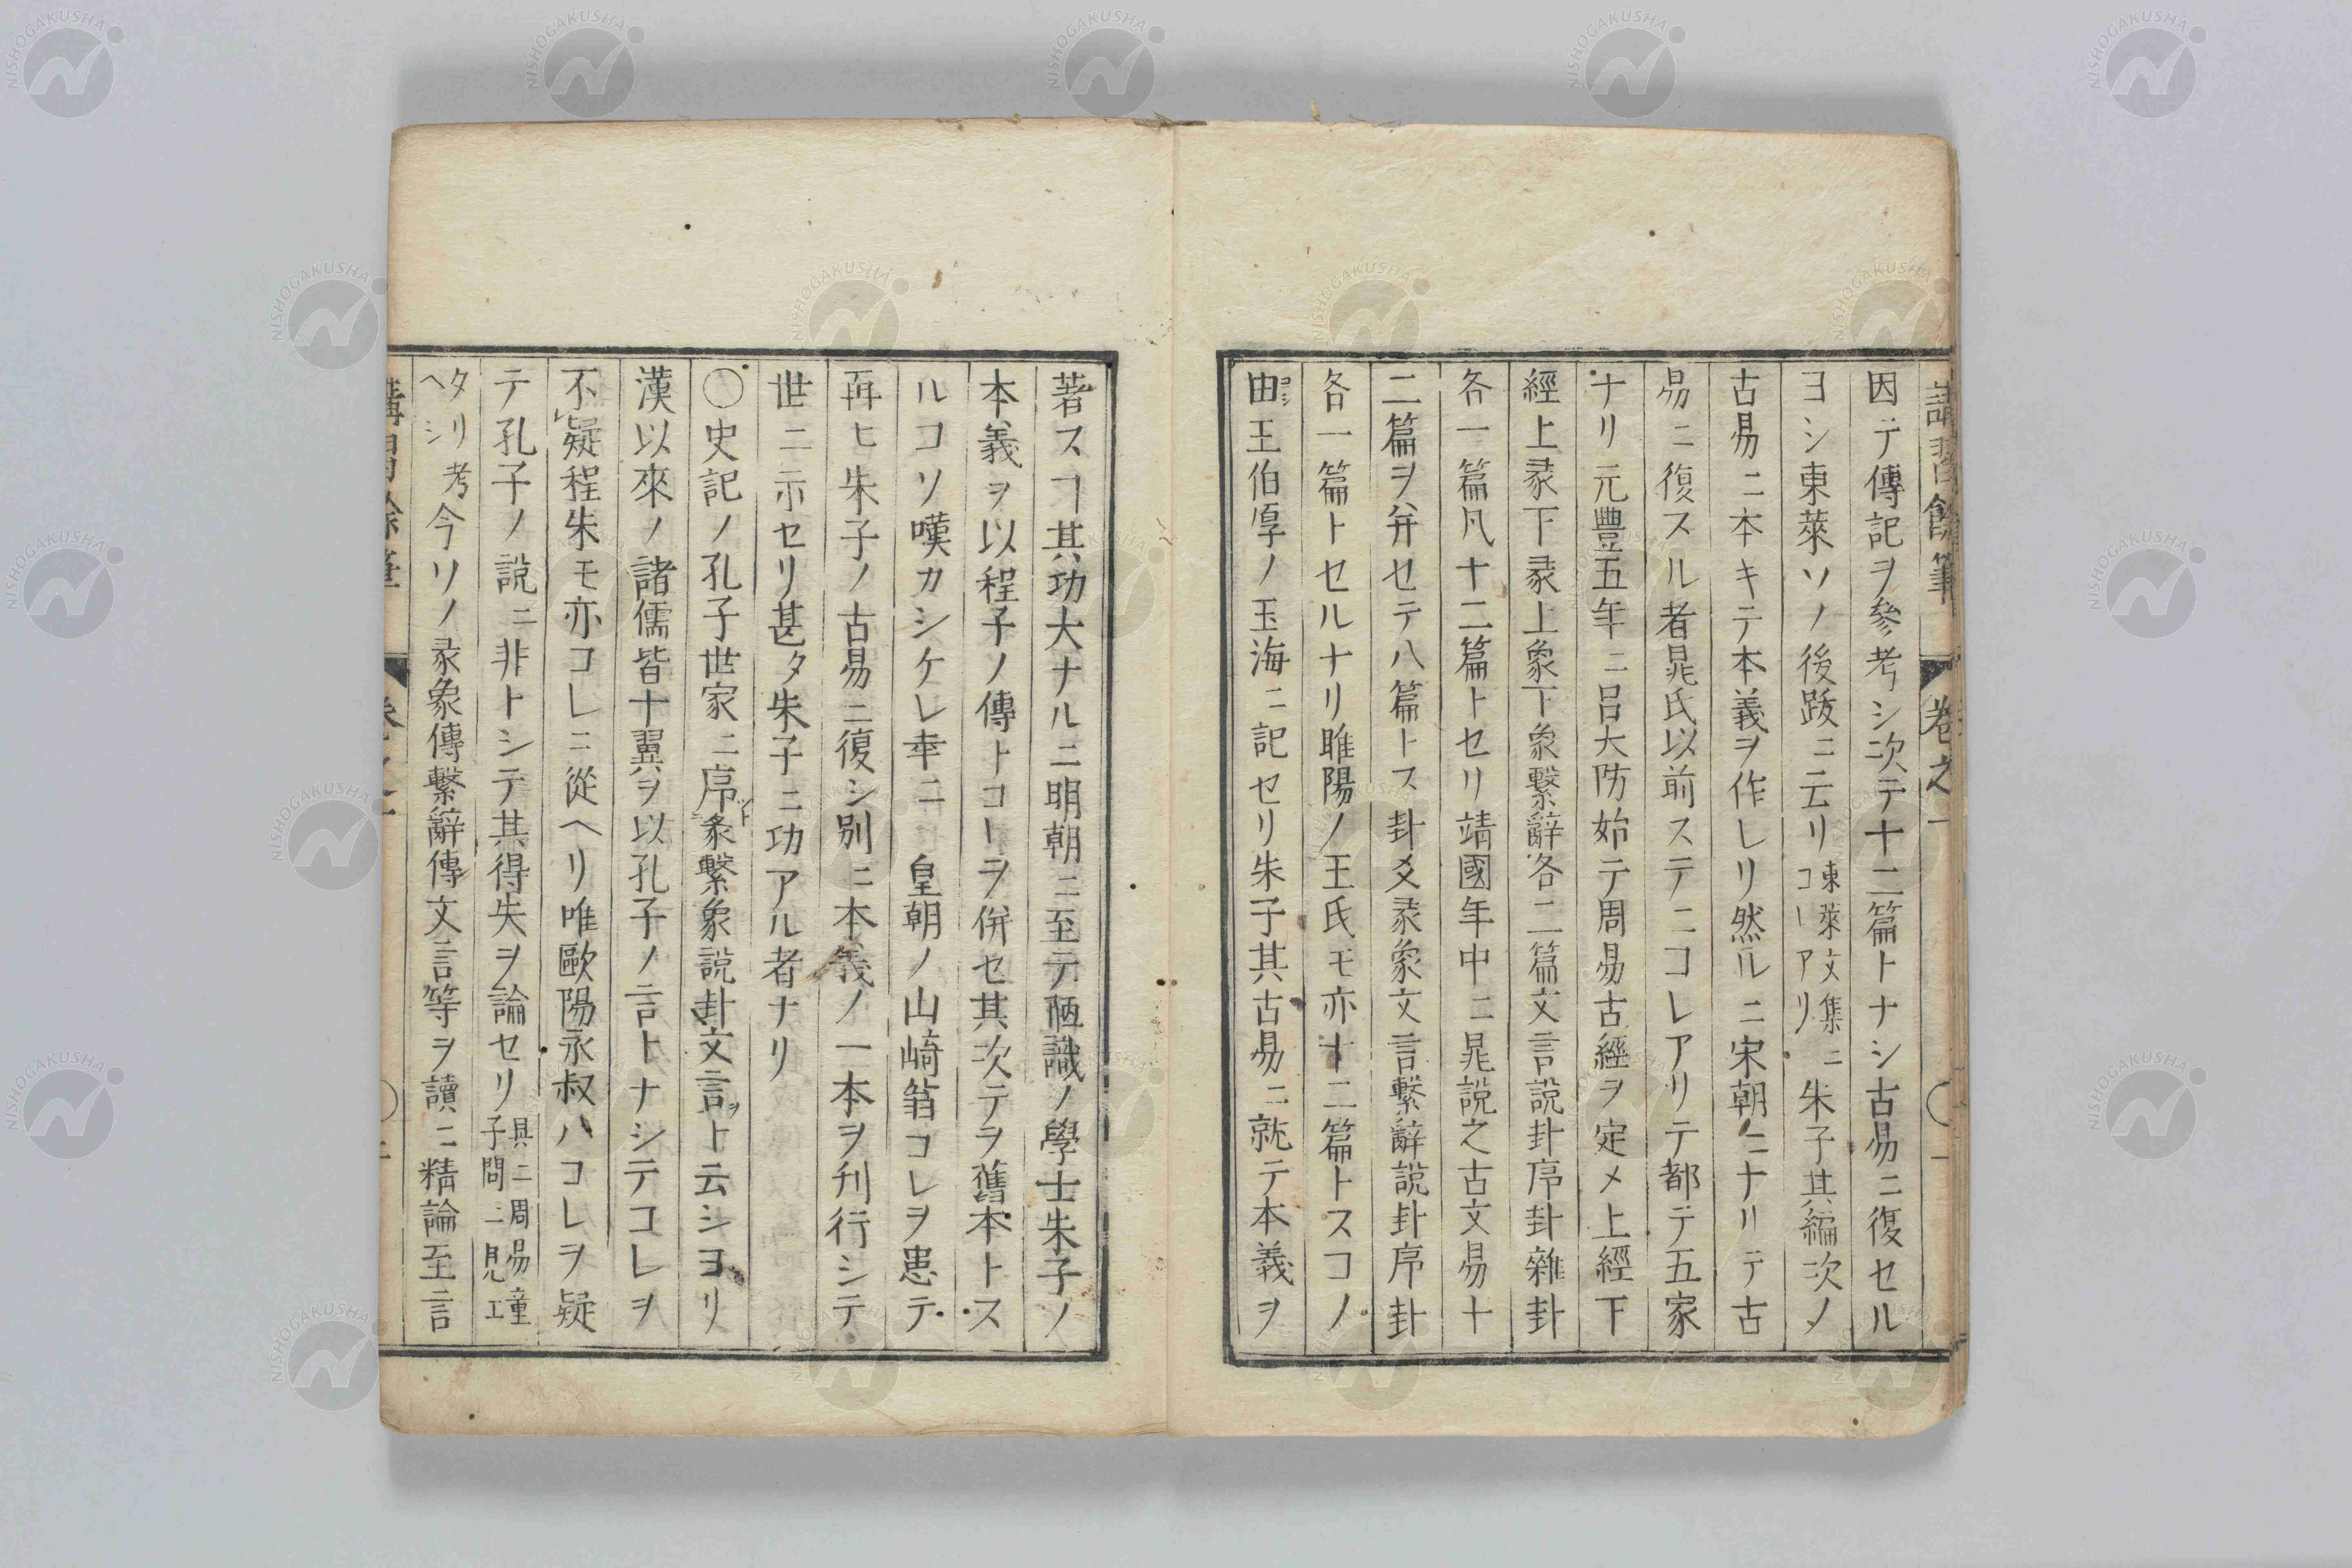 講習餘筆 卷之一 〇 一
因テ傳記ヲ參考シ次テ十二篇トナシ古易ニ復セル
ヨシ東萊ソノ後跋ニ云リ東萊文集ニコヿアリ朱子其編次ノ
古易ニ本キテ本義ヲ作レリ然ルニ宋朝ニナリテ古
易ニ復スル者晁氏以前ステニコレアリテ都テ五家
ナリ元豐五年ニ呂大防始テ周易古經ヲ定メ上經下
經上彖下彖上象下象繫辭各二篇文言說卦序卦雜卦
各一篇凡十二篇トセリ靖國年中ニ晁說之古文易十
二篇ヲ并セテ八篇トス卦爻彖象文言繫辭說卦序卦
各一篇トセルナリ睢陽ノ王氏モ亦十二篇トスコノ
由王伯厚ノ玉海ニ記セリ朱子其古易ニ就テ本義ヲ
著スヿ其功大ナルニ明朝ニ至テ陋識ノ學士朱子ノ
本義ヲ以程子ノ傳トコトヲ併セ其次テヲ舊本トス
ルコソ嘆カシケレ幸ニ 皇朝ノ山崎翁コレヲ患テ
再ヒ朱子ノ古易ニ復シ別ニ本義ノ一本ヲ刊行シテ
世ニ示セリ甚タ朱子ニ功アル者ナリ
〇史記ノ孔子世家ニ序彖繫象說卦文言ヲト云シヨリ
漢以來ノ諸儒皆十翼ヲ以孔子ノ言トナシテコレヲ
不疑程朱モ亦コレニ從ヘリ唯歐陽永叔ハコレヲ疑
テ孔子ノ說ニ非トシテ其得失ヲ論セリ具ニ周易童子問ニ見エ
タリ考ヘシ今ソノ彖象傳繫辭傳文言等ヲ讀ニ精論至言